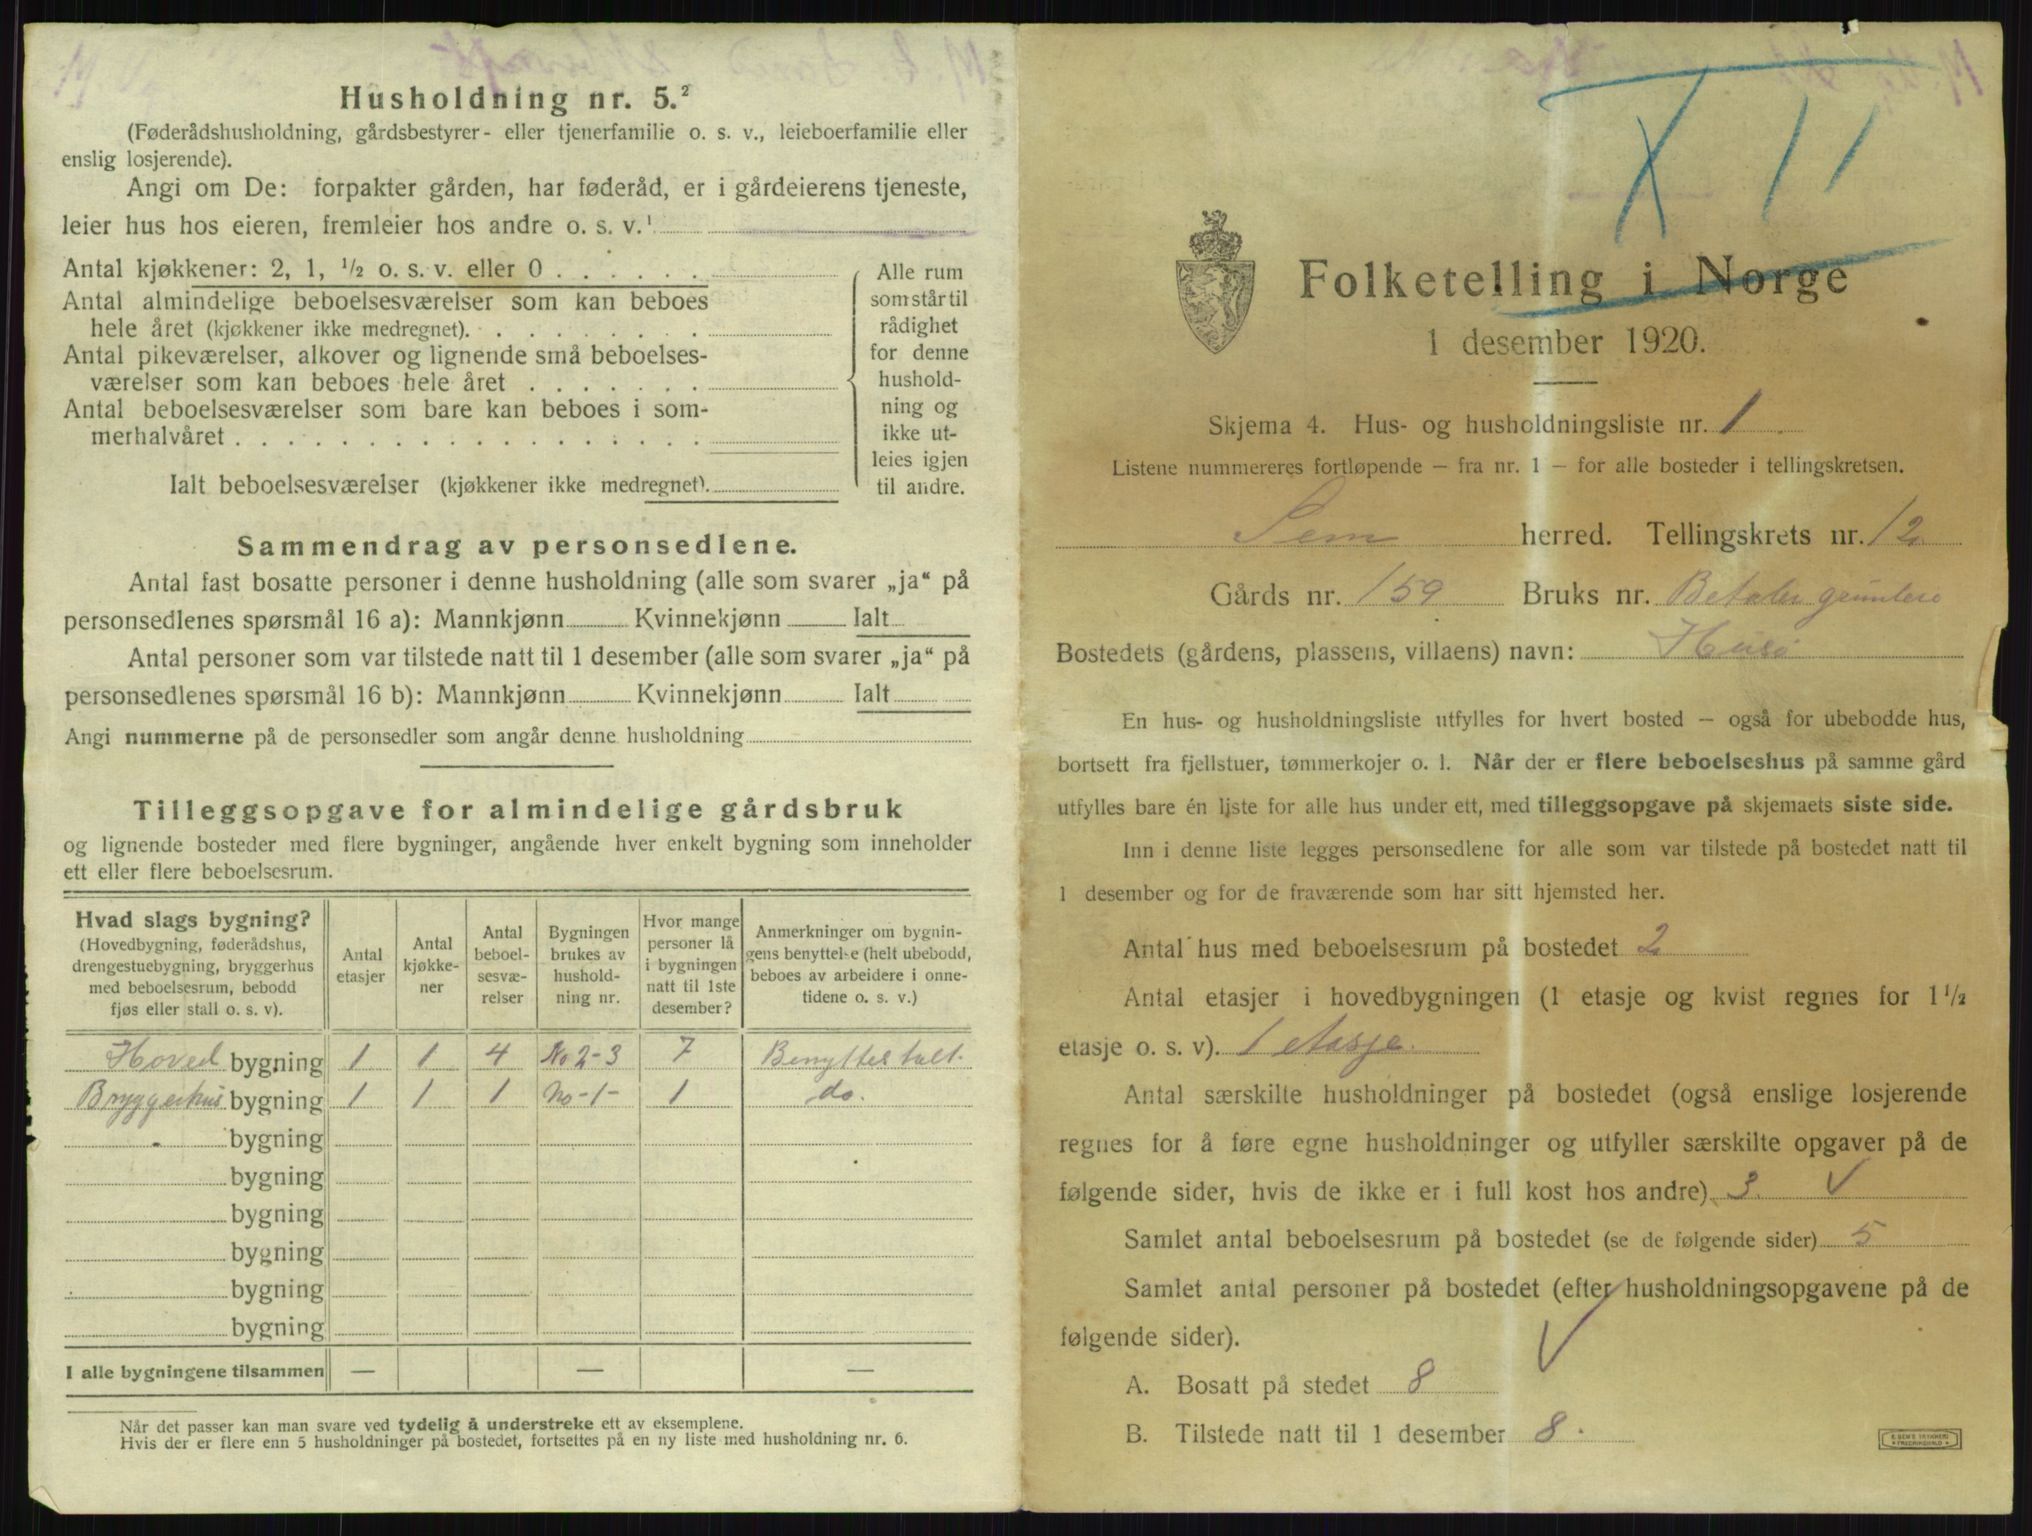 Husholdning nr. 5.²
(Føderådshusholdning, gårdsbestyrer- eller tjenerfamilie o. s. v., leieboerfamilie eller
enslig losjerende).
Angi om De: forpakter gården, har føderåd, er i gårdeierens tjeneste,
leier hus hos eieren, fremleier hos andre o. s. v.¹
Antal kjøkkener: 2, 1, ½ o. s. v. eller 0 . . . . . .
Antal almindelige beboelsesværelser som kan beboes
hele året (kjøkkener ikke medregnet). . . . . . . . .
Antal pikeværelser, alkover og lignende små beboelses-
værelser som kan beboes hele året . . . . . . .
Antal beboelsesværelser som bare kan beboes i som-
merhalvåret . . . . . . . . . . . . . . . . . .
Ialt beboelsesværelser (kjøkkener ikke medregnet).
Alle rum
som står til
rådighet
for denne
hushold-
ning og
ikke ut-
leies igjen
til andre.
Sammendrag av personsedlene.
Antal fast bosatte personer i denne husholdning (alle som svarer „ja“ på
personsedlenes spørsmål 16 a): Mannkjønn Kvinnekjønn Ialt
Antal personer som var tilstede natt til 1 desember (alle som svarer „ja“ på
personsedlenes spørsmål 16 b): Mannkjønn Kvinnekjønn Ialt
Angi nummerne på de personsedler som angår denne husholdning
Tilleggsopgave for almindelige gårdsbruk
og lignende bosteder med flere bygninger, angående hver enkelt bygning som inneholder
ett eller flere beboelsesrum.
Hvad slags bygning?
(Hovedbygning, føderådshus,
drengestuebygning, bryggerhus
med beboelsesrum, bebodd
fjøs eller stall o. s. v).
Antal
etasjer
Antal
kjøkke-
ner
Antal
beboel-
sesvæ-
relser
Bygningen
brukes av
hushold-
ning nr.
Hvor mange
personer lå
i bygningen
natt til 1ste
desember?
Anmerkninger om bygnin-
gens benyttelse (helt ubebodd,
beboes av arbeidere i onne-
tidene o. s. v.)
Hoved bygning 1 1 4 No 2-3 7 Benyttes helt.
Bryggerhus bygning 1 1 1 No -1- 1 do.
bygning
bygning
bygning
bygning
bygning
bygning
I alle bygningene tilsammen — — —
Når det passer kan man svare ved tydelig å understreke ett av eksemplene.
Hvis der er flere enn 5 husholdninger på bostedet, fortsettes på en ny liste med husholdning nr. 6.
XII
Folketelling i Norge
1 desember 1920.
Skjema 4. Hus- og husholdningsliste nr. 1
Listene nummereres fortløpende – fra nr. 1 – for alle bosteder i tellingskretsen.
Sem herred. Tellingskrets nr. 12
Gårds nr. 159 Bruks nr. Betaler grunleie
Bostedets (gårdens, plassens, villaens) navn: Husø
En hus- og husholdningsliste utfylles for hvert bosted – også for ubebodde hus,
bortsett fra fjellstuer, tømmerkojer o. l. Når der er flere beboelseshus på samme gård
utfylles bare én liste for alle hus under ett, med tilleggsopgave på skjemaets siste side.
Inn i denne liste legges personsedlene for alle som var tilstede på bostedet natt til
1 desember og for de fraværende som har sitt hjemsted her.
Antal hus med beboelsesrum på bostedet 2
Antal etasjer i hovedbygningen (1 etasje og kvist regnes for 1½
etasje o. s. v). 1 etasje.
Antal særskilte husholdninger på bostedet (også enslige losjerende
regnes for å føre egne husholdninger og utfyller særskilte opgaver på de
følgende sider, hvis de ikke er i full kost hos andre) 3.
Samlet antal beboelsesrum på bostedet (se de følgende sider) 5
Samlet antal personer på bostedet (efter husholdningsopgavene på de
følgende sider).
A. Bosatt på stedet 8
B. Tilstede natt til 1 desember 8.
E. SEM'S TRYKKERI
FREDRIKSHALD